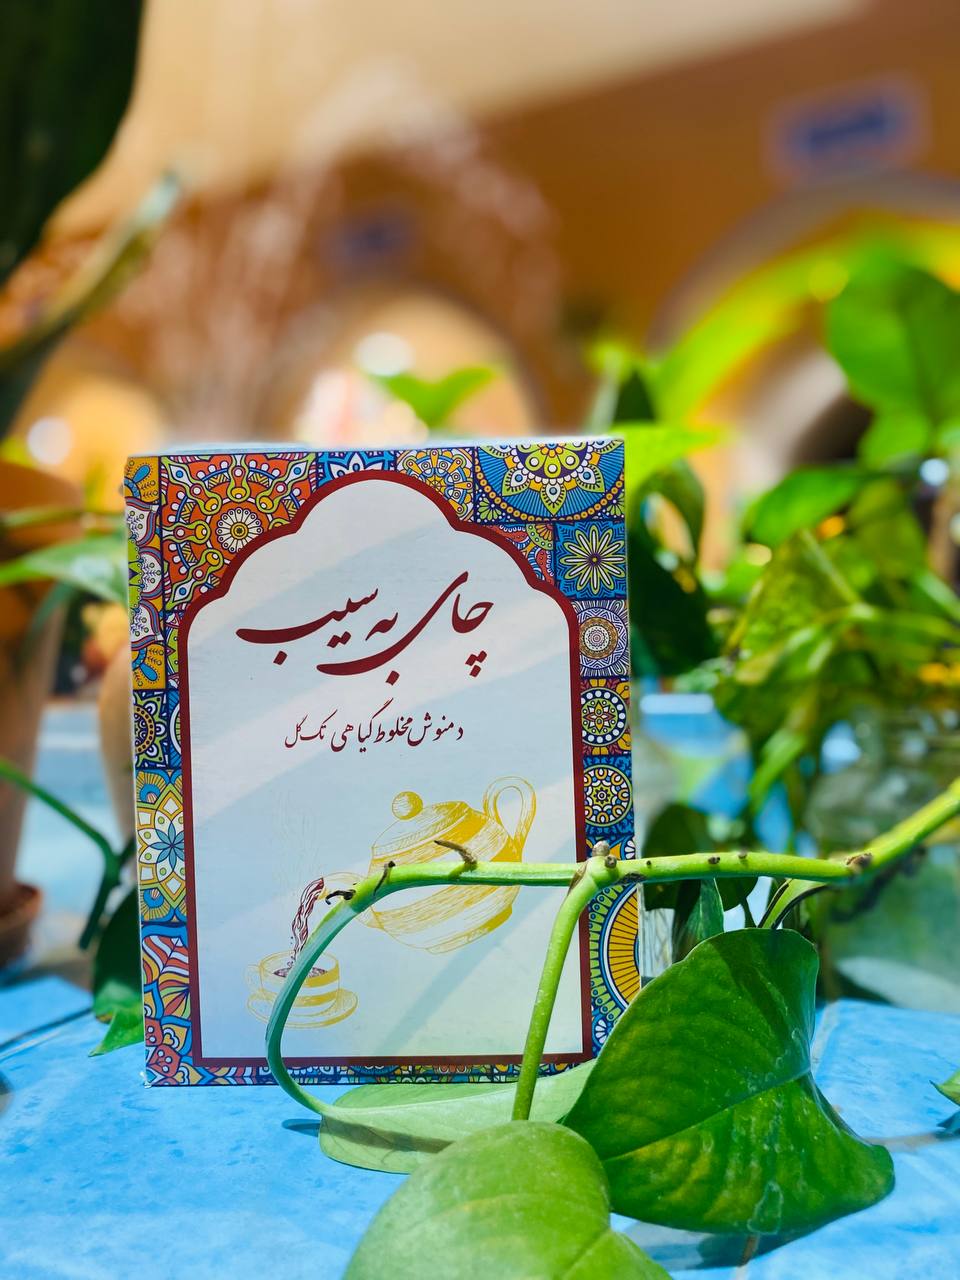 چای به سیب
دمنوش مخلوط گیاهی تک گل